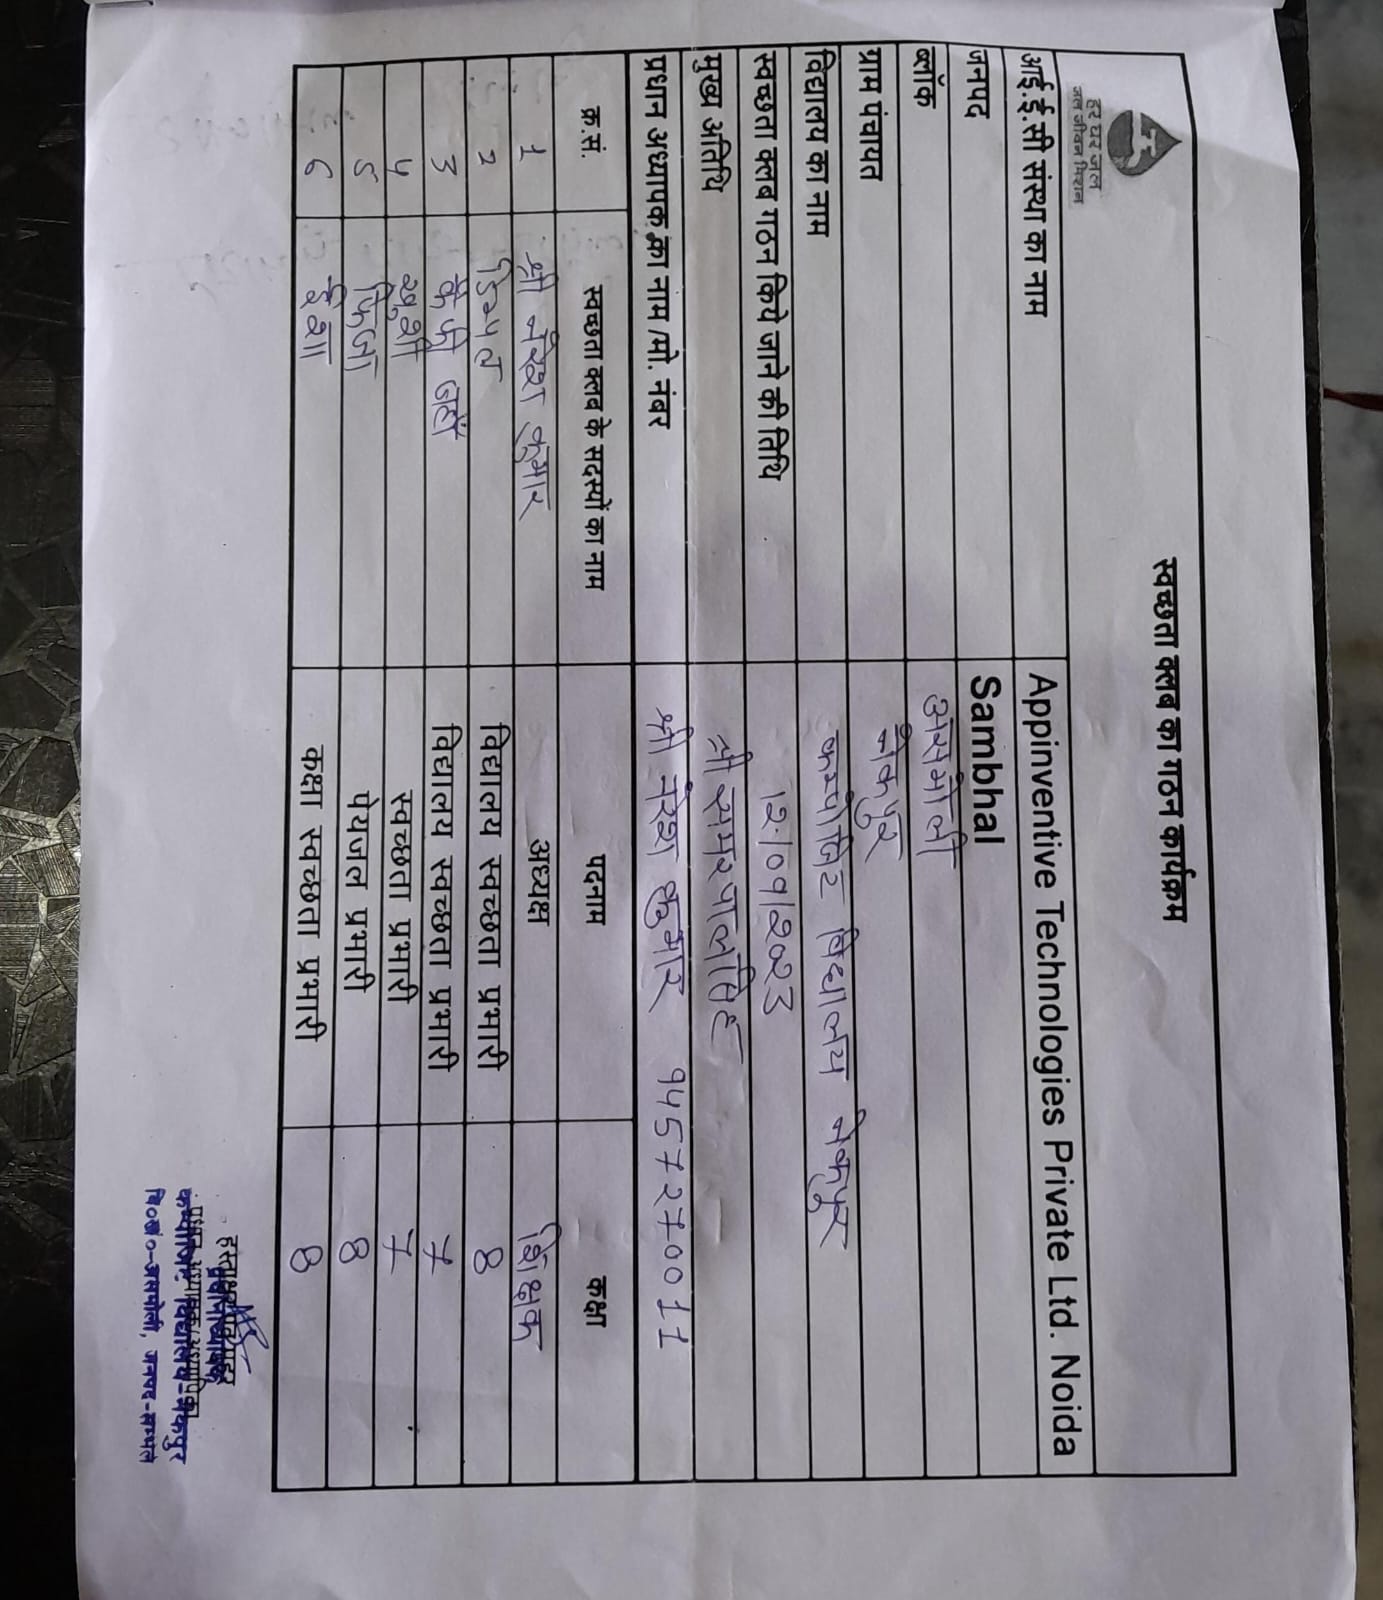 स्वच्छता क्लब का गठन कार्यक्रम
हर घर जल
जल जीवन मिशन
आई.ई.सी संस्था का नाम Appinventive Technologies Private Ltd. Noida
जनपद Sambhal
ब्लॉक असमोली
ग्राम पंचायत नेकपुर
विद्यालय का नाम कम्पोजिट विद्यालय नेकपुर
स्वच्छता क्लब गठन किये जाने की तिथि 12/09/2023
मुख्य अतिथि श्री समरपाल सिंह
प्रधान अध्यापक का नाम /मो. नंबर श्री नरेश कुमार 9457270011
क्र.सं. स्वच्छता क्लब के सदस्यों का नाम पदनाम कक्षा
1 श्री नरेश कुमार अध्यक्ष शिक्षक
2 डिम्पल विद्यालय स्वच्छता प्रभारी 8
3 कैफी जहाँ विद्यालय स्वच्छता प्रभारी 7
4 खुशी स्वच्छता प्रभारी 7
5 फिजा पेयजल प्रभारी 8
6 ईशा कक्षा स्वच्छता प्रभारी 8
प्रधानाध्यापक
कम्पोजिट विद्यालय-नेकपुर
वि०खं०-असमोली, जनपद-सम्भल